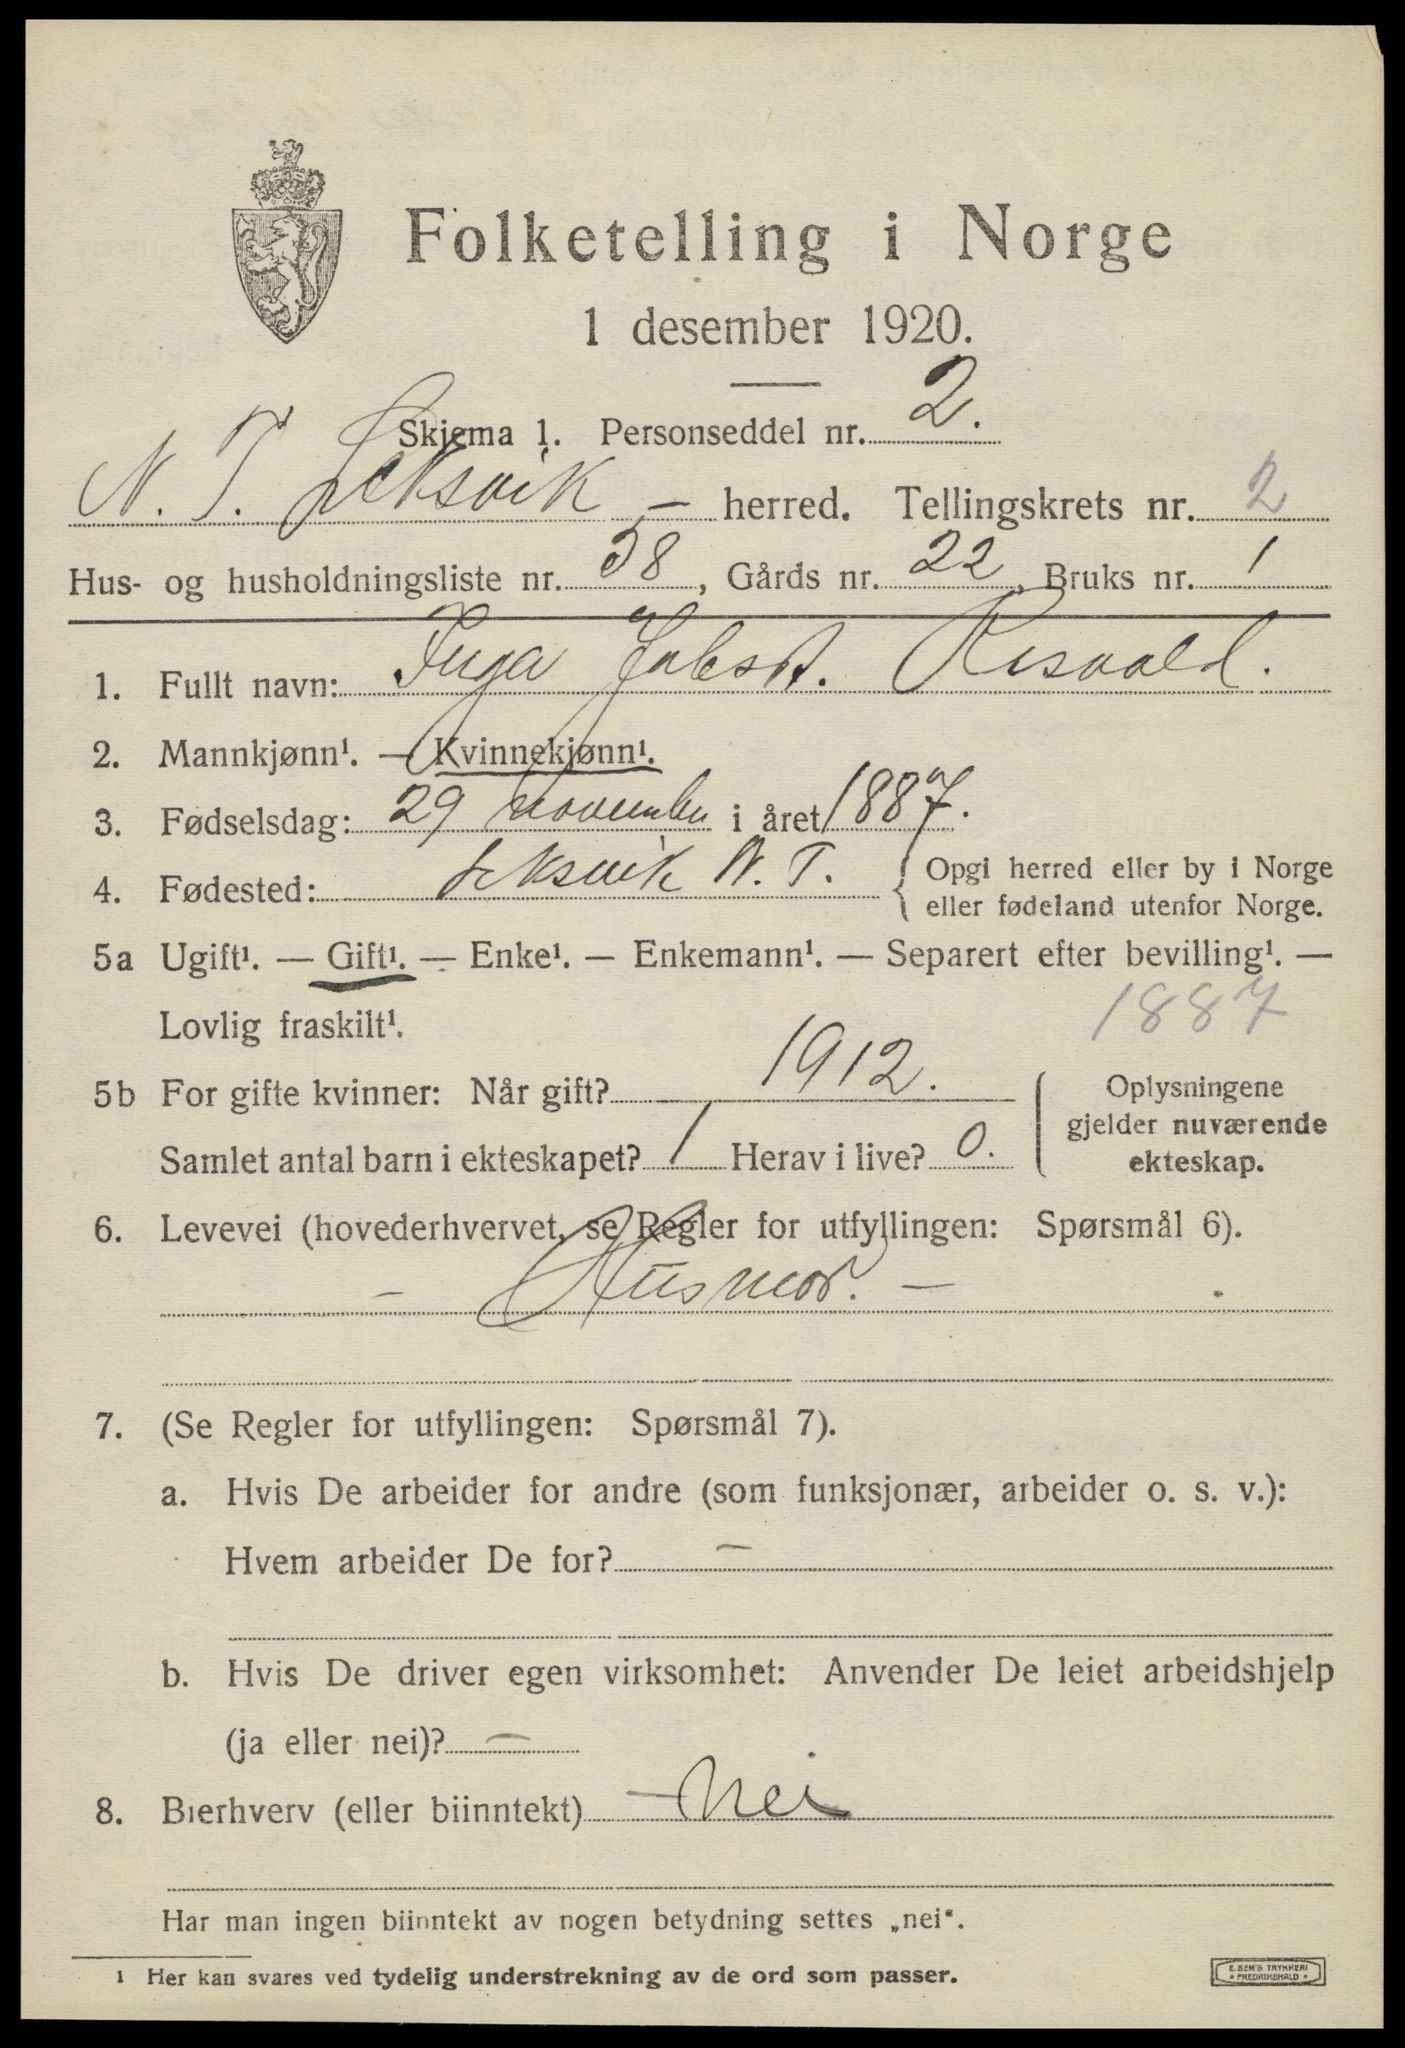 Folketelling i Norge
1 desember 1920.
Skjema 1. Personseddel nr. 2.
N. T. Leksvik - herred. Tellingskrets nr. 2
Hus- og husholdningsliste nr. 38, Gårds nr. 22, Bruks nr. 1
1. Fullt navn: Inga Risvald.
2. Mannkjønn¹. — Kvinnekjønn¹.
3. Fødselsdag: 29 november i året 1887.
4. Fødested: Leksvik N. T. { Opgi herred eller by i Norge
eller fødeland utenfor Norge.
5a Ugift¹. — Gift¹. — Enke¹. — Enkemann¹. — Separert efter bevilling¹. —
Lovlig fraskilt¹. 1887
5b For gifte kvinner: Når gift? 1912.
Samlet antal barn i ekteskapet? 1 Herav i live? 0.
Oplysningene
gjelder nuværende
ekteskap.
6. Levevei (hovederhvervet, se Regler for utfyllingen: Spørsmål 6).
- Husmor. -
7. (Se Regler for utfyllingen: Spørsmål 7).
a. Hvis De arbeider for andre (som funksjonær, arbeider o. s. v.):
Hvem arbeider De for? —
b. Hvis De driver egen virksomhet: Anvender De leiet arbeidshjelp
(ja eller nei)? —
8. Bierhverv (eller biinntekt) - Nei
Har man ingen biinntekt av nogen betydning settes „nei“.
1 Her kan svares ved tydelig understrekning av de ord som passer.
E. SEM'S TRYKKERI
* FREDRIKSHALD *